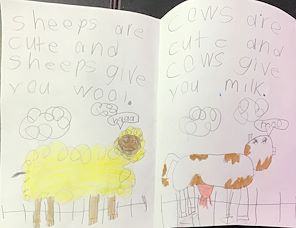 sheeps are
cute and
sheeps give
you wool.
haaa
cows are
cute and
cows give
you milk.
moo